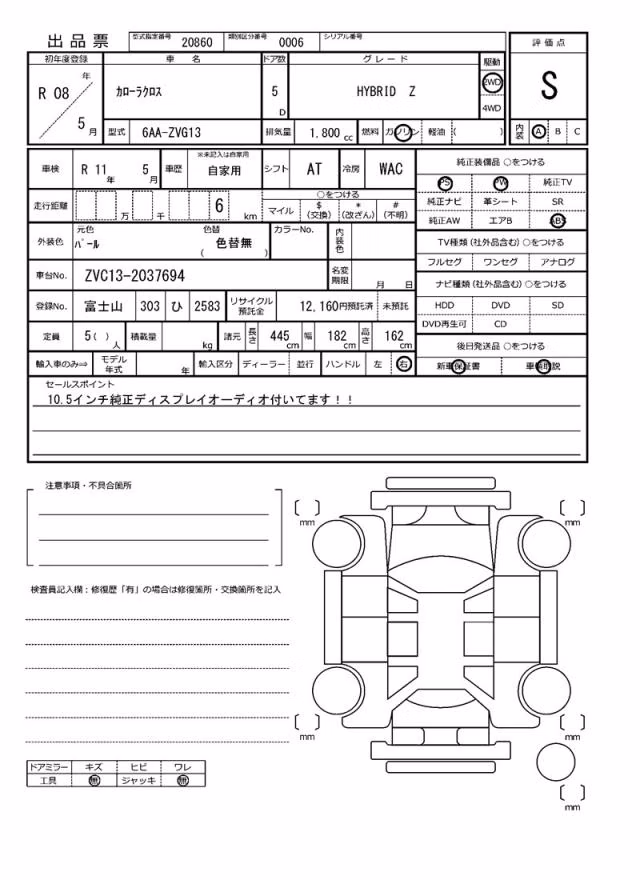 出品票 型式指定番号 20860 類別区分番号 0006 シリアル番号
評価点
S
内装 A B C
初年度登録 車名 ドア数 グレード 駆動
R 08 年 5 月 カローラクロス 5 D HYBRID Z 2WD 4WD
型式 6AA-ZVG13 排気量 1.800 cc 燃料 ガソリン 軽油 ( )
車検 R 11 年 5 月 車歴 ※未記入は自家用 自家用 シフト AT 冷房 WAC
走行距離 万 千 6 km ○をつける マイル $(交換) *(改ざん) #(不明)
外装色 元色 パール 色替 色替無 ( ) カラーNo. 内装色
車台No. ZVC13-2037694 名変期限 月 日
登録No. 富士山 303 ひ 2583 リサイクル預託金 12,160円預託済 未預託
定員 5( )人 積載量 kg 諸元 長さ 445cm 幅 182cm 高さ 162cm
輸入車のみ⇒ モデル年式 年 輸入区分 ディーラー 並行 ハンドル 左 右
純正装備品 ○をつける
PS PW 純正TV
純正ナビ 革シート SR
純正AW エアB ABS
TV種類(社外品含む)○をつける
フルセグ ワンセグ アナログ
ナビ種類(社外品含む)○をつける
HDD DVD SD
DVD再生可 CD
後日発送品 ○をつける
新車保証書 車輌取説
セールスポイント
10.5インチ純正ディスプレイオーディオ付いてます！！
注意事項・不具合箇所
検査員記入欄：修復歴「有」の場合は修復箇所・交換箇所を記入
ドアミラー キズ ヒビ ワレ
工具 無 ジャッキ 無
mm
mm
mm
mm
mm